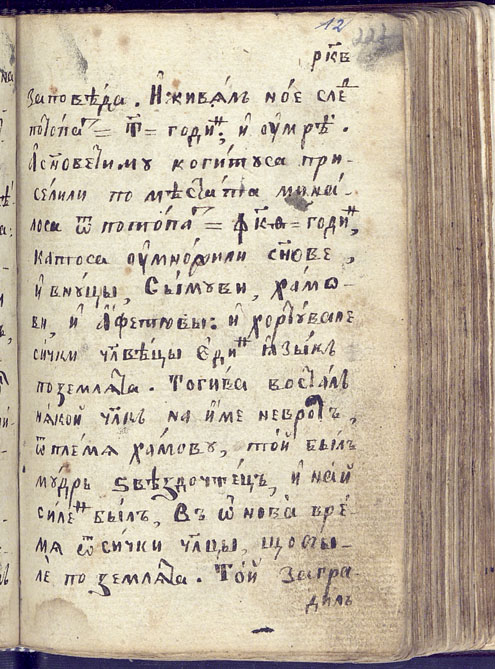 12
222
рк҃в
заповѣда. И҆живѧлъ но́е слѣ́
потопа = т҃ = годи́н, и҆ ᲂу҆мрѣ̀.
А҆сн҃овети́му когитуса при-
сели́ли по мѣста́та мина́-
лоса ѿ потопа = ф҃к҃а = годи́н,
каптоса ᲂу҆множили сн҃ове,
и҆ внуцы, Сы́муви, ха́мо-
ви, и҆ А҆́фетювы: и҆ хортува́ле
сички чл҃вѣ́цы є҆ди́н ꙗ҆зы́къ
поземлѧ́та. Тоги́ва воста́лъ
нѧ́кой чл҃къ на и҆́ме невро́тъ,
ѿ пле́мѧ ха́мову, то́й бы́лъ
му́дрь ѕвѣздочте́цъ, и҆ на́й
силе́н бы́лъ, Въ ѡ҆нова̀ вре́-
мѧ ѿ си́чки чл҃цы, що сты-
лѐ по землѧ́та. То́й загра-
ди́лъ